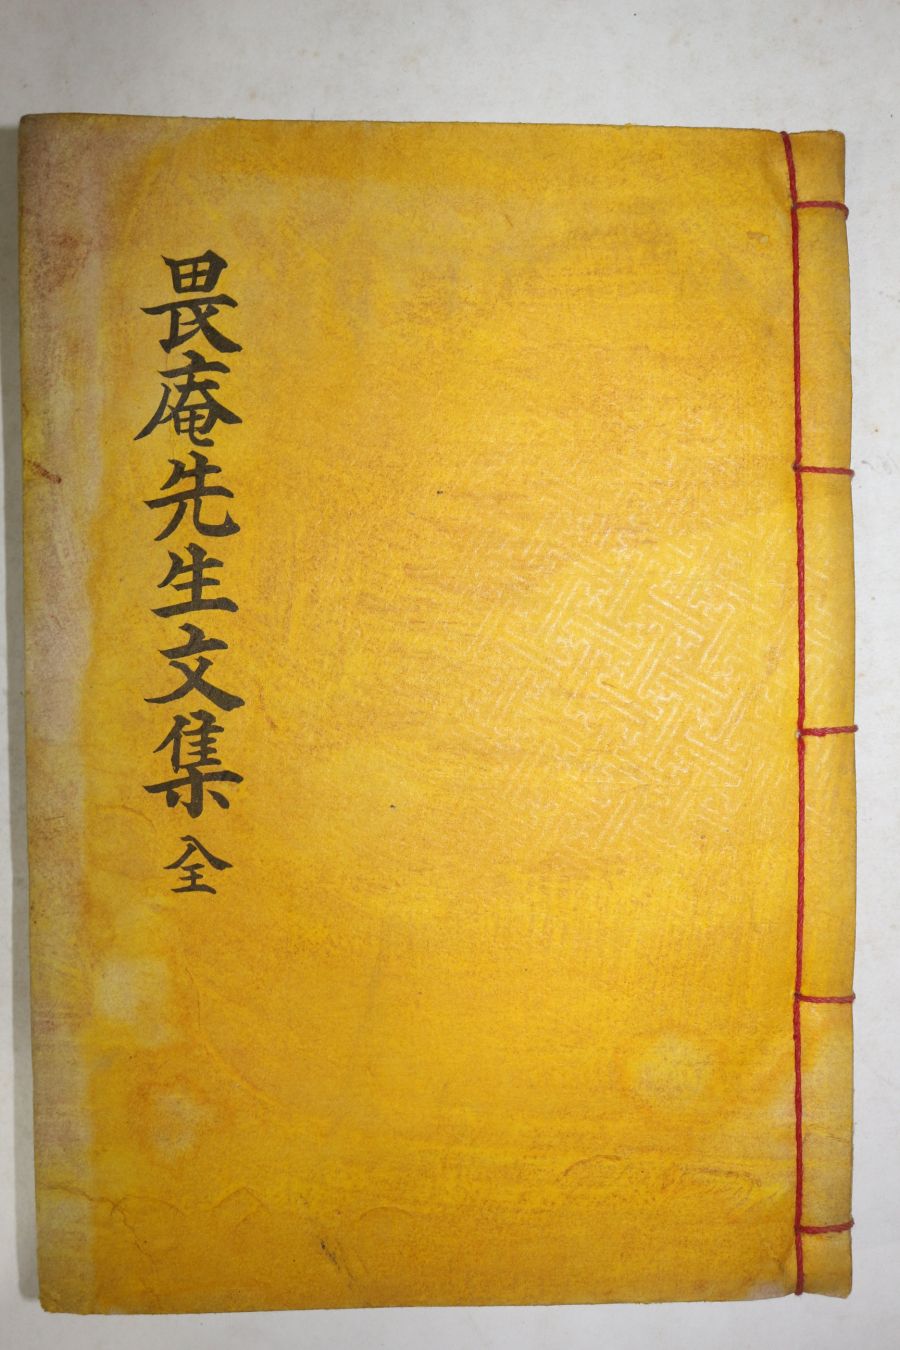 畏庵先生文集 全